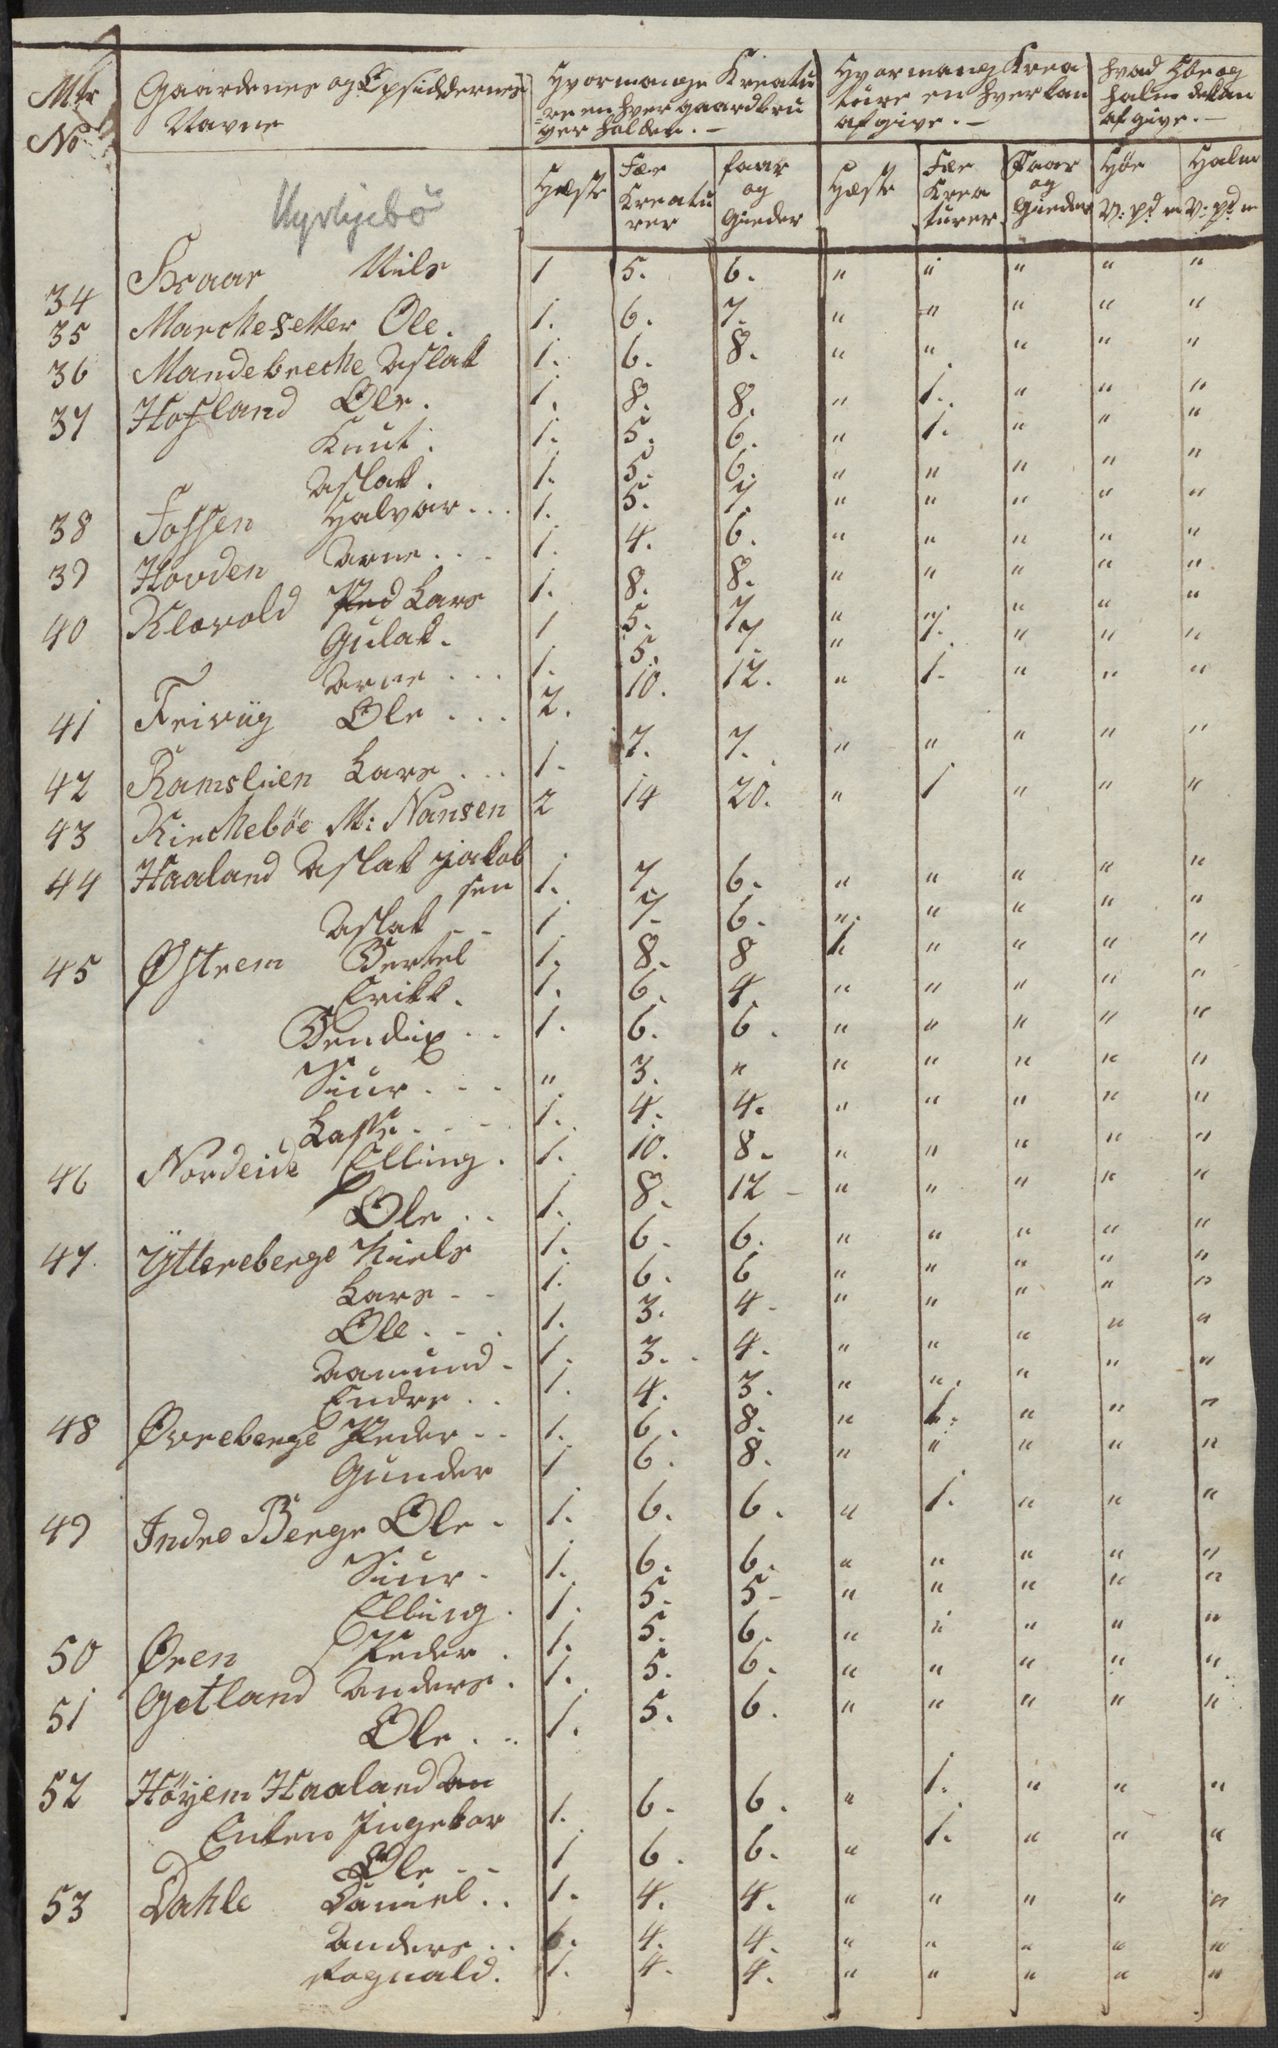 Mtr No Gaardenes og Opsiddernes Navne Hvormange Kreature en hver gaardbruger holder. — Hvormang Kreature en hver kan afgive. — hvad Höe og halm det kan afgive. —
Hæste Fæe Kreaturer faar og Gieder Hæste Fæe Kreaturer Faar og Gieder Höe V: pd m Halm V: pd m
Kyrkjebø
34 Skaar Niels 1 5. 6. " " " " "
35 Marchesetter Ole. 1. 6. 7. " " " " "
36 Mandebreche Aslak 1. 6. 8. " " " " "
37 Hofland Ole. 1. 8. 8. " 1. " " "
Knut. 1. 5. 6. " 1. " " "
Aslak. 1. 5. 6. " " " " "
38 Fossen Halvor . . . 1. 5. 7 " " " " "
39 Hovden Arne . . . 1. 4. 6. " " " " "
40 Klævold Ped Lars 1. 8. 8. " " " " "
Gulak. 1 5. 7. " 1. " " "
Arne . . . 1. 5. 7. " 1. " " "
41 Freivüg Ole . . . 2. 10. 12. " " " " "
42 Ramslien Lars . . . 1. 7. 7. " " " " "
43 Kirchebøe M: Nansen 2 14 20. " 1 " " "
44 Haaland Aslak Jakobsen 1. 7 6. " " " " "
Aslak - - 1 7. 6. " " " " "
45 Østrem Bertel 1. 8. 8 1. " " " "
Erikk. 1. 6. 4. " " " " "
Bendix . . 1. 6. 6. " " " " "
Siur . - - " 3. " " " " " "
Lasse . - - - 1. 4. 4. " " " " "
46 Nordeide Elling. 1. 10. 8. " " " " "
Ole . . 1. 8. 12 - " " " " "
47. Yttereberge Niels 1. 6. 6. " " " " "
Lars - - 1. 6. 6 " " " " "
Ole . - . 1. 3. 4 - " " " " "
Aamund - 1. 3. 4. " " " " "
Endre . . 1. 4. 3. " " " " "
48 Øvreberge Peder - - 1. 6. 8. " 1. " " "
Gunder 1 6. 8. " " " " "
49 Indre Berge Ole - 1. 6. 6. " 1. " " "
Siur - 1. 6. 6. " " " " "
Elling. 1. 5. 5 - " " " " "
50 Øren Peder . 1. 5. 6. " " " " "
51 Getland Anders. 1. 5. 6. " " " " "
Ole . . 1. 5. 6. " " " " "
52 Höyem Haaland An
Enken Ingebor 1. 6. 6. " 1. " " "
Ole - - 1 6. 6. " 1. " " "
53 Dahle Daniel . . 1. 4. 4. " " " " "
Anders . . 4. 4. " " " " "
Rognald. 1. 4. 4. " " " " "